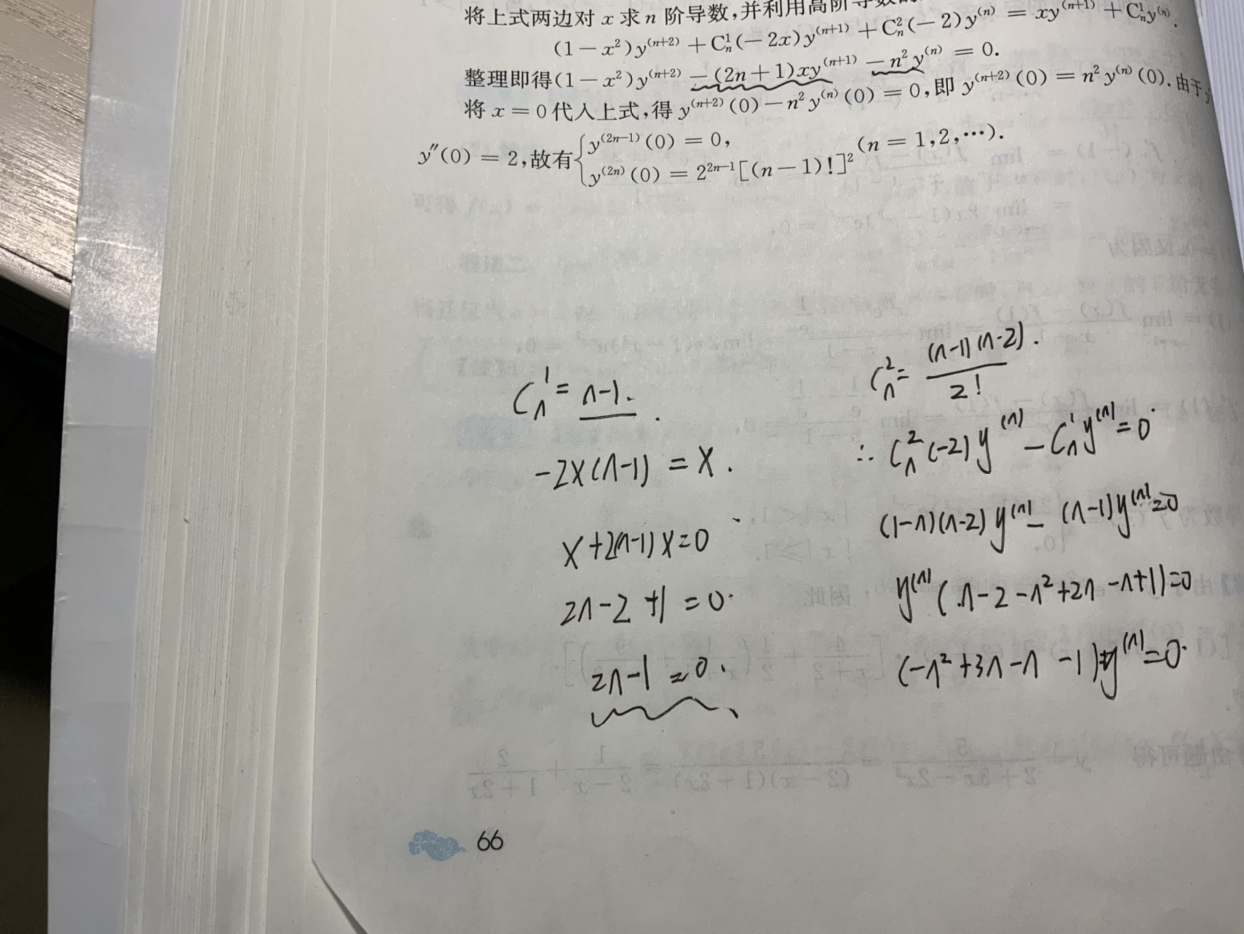 将上式两边对 x 求 n 阶导数,并利用高阶导数的
(1－x²)y⁽ⁿ⁺²⁾＋C¹ₙ(－2x)y⁽ⁿ⁺¹⁾＋C²ₙ(－2)y⁽ⁿ⁾＝xy⁽ⁿ⁺¹⁾＋C¹ₙy⁽ⁿ⁾.
整理即得(1－x²)y⁽ⁿ⁺²⁾－(2n＋1)xy⁽ⁿ⁺¹⁾－n²y⁽ⁿ⁾＝0.
将 x＝0代入上式,得 y⁽ⁿ⁺²⁾(0)－n²y⁽ⁿ⁾(0)＝0,即 y⁽ⁿ⁺²⁾(0)＝n²y⁽ⁿ⁾(0).由于
y″(0)＝2,故有{y⁽²ⁿ⁻¹⁾(0)＝0, y⁽²ⁿ⁾(0)＝2²ⁿ⁻¹[(n－1)!]² (n＝1,2,⋯).
C¹ₙ = n-1.
-2x(n-1) = x.
x+2(n-1)x=0
2n-2+1=0.
2n-1=0.
C²ₙ= (n-1)(n-2)/2!.
∴ C²ₙ(-2)y⁽ⁿ⁾ - C¹ₙy⁽ⁿ⁾=0
(1-n)(n-2)y⁽ⁿ⁾- (n-1)y⁽ⁿ⁾=0
y⁽ⁿ⁾(n-2-n²+2n-n+1)=0
(-n²+3n-n-1)y⁽ⁿ⁾=0.
66